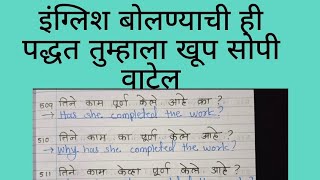 इंग्लिश बोलण्याची ही
पद्धत तुम्हाला खूप सोपी
वाटेल
509 तिने काम पूर्ण केले आहे का ?
→ Has she completed the work?
510 तिने काम का पूर्ण केले आहे ?
→ Why has she completed the work?
511 तिने काम केव्हा पूर्ण केले आहे ?